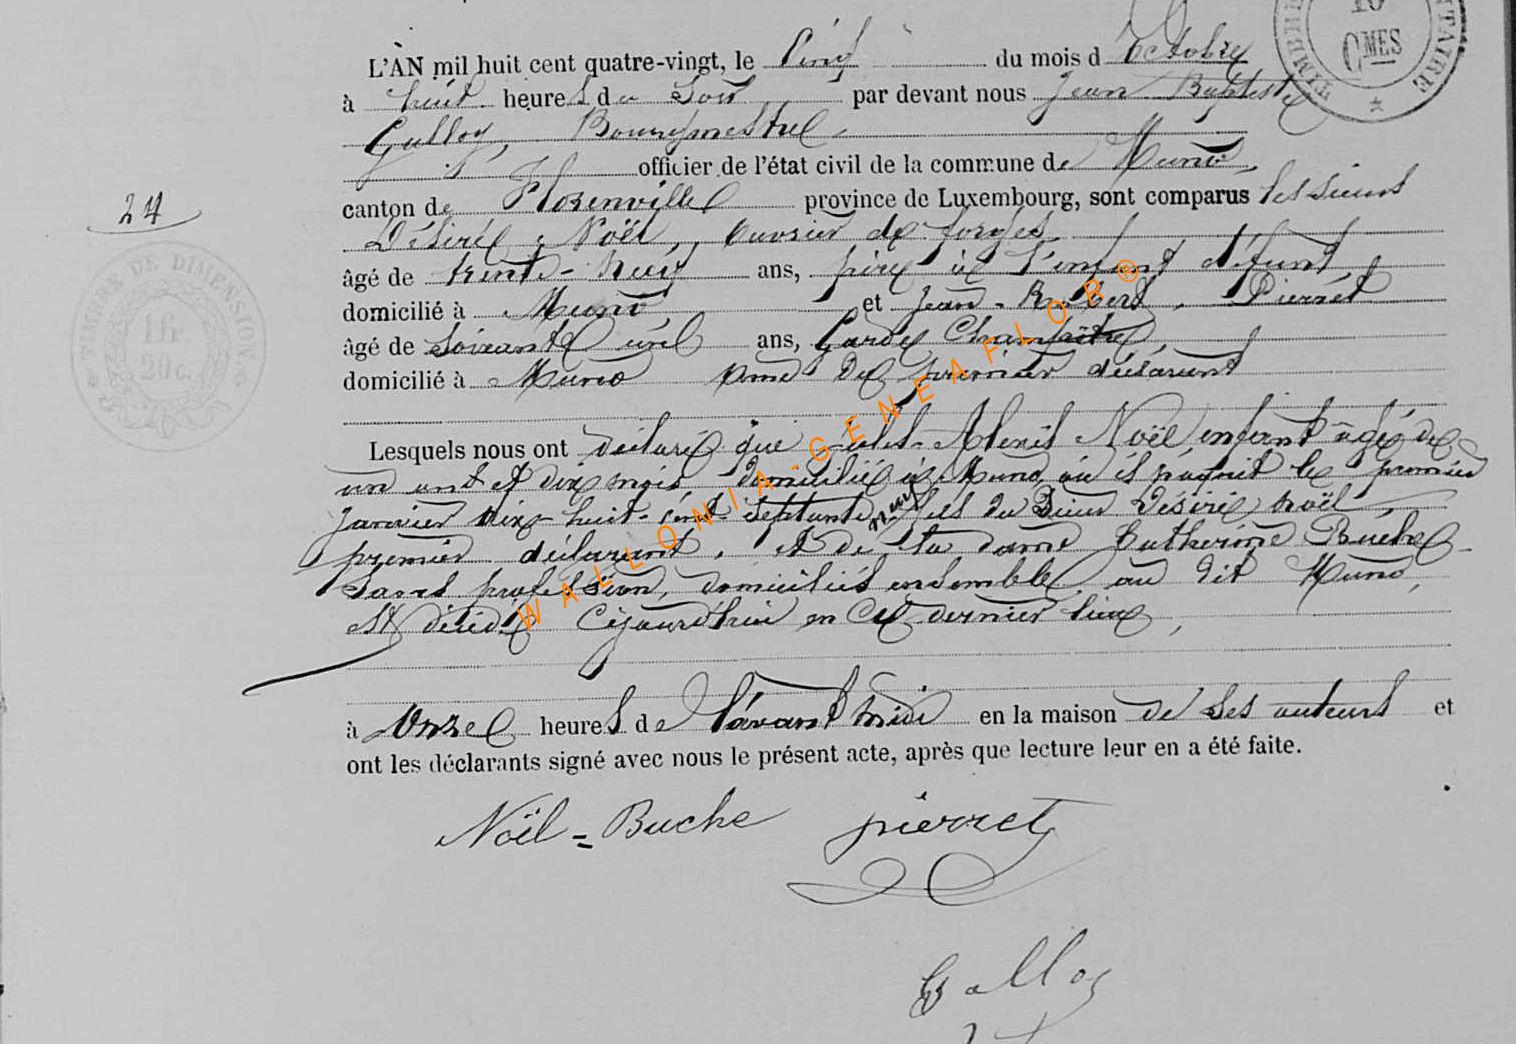 L'AN mil huit cent quatre-vingt, le Cinq du mois d Octobre
à huit heures du Soir par devant nous Jean Baptiste
Galloy, Bourgmestre
officier de l'état civil de la commune de Muno,
canton de Florenville province de Luxembourg, sont comparus les sieurs
Désiré Noël, Ouvrier de forges
âgé de trente-neuf ans, père à l'enfant défunt
domicilié à Muno et Jean- Pierret
âgé de Soixante ans, Garde Champêtre,
domicilié à Muno ami du premier déclarant
Lesquels nous ont déclaré que Jules-Alexis Noël enfant âgé de
un an et dix mois domicilié à Muno où il naquit le premier
Janvier dix-huit-cent-septante neuf fils du Sieur Désiré Noël,
premier déclarant, et de la dame Catherine Buche
sans profession, domiciliés ensemble au dit Muno,
est décédé Cejourd'hui en ce dernier lieu,
à Onze heures de l'avant midi en la maison de ses auteurs et
ont les déclarants signé avec nous le présent acte, après que lecture leur en a été faite.
Noël=Buche pierret
Galloy
24
TIMBRE DE DIMENSION
1fr.
20c.
CMES
WALLONIA-GENEAFLOB®